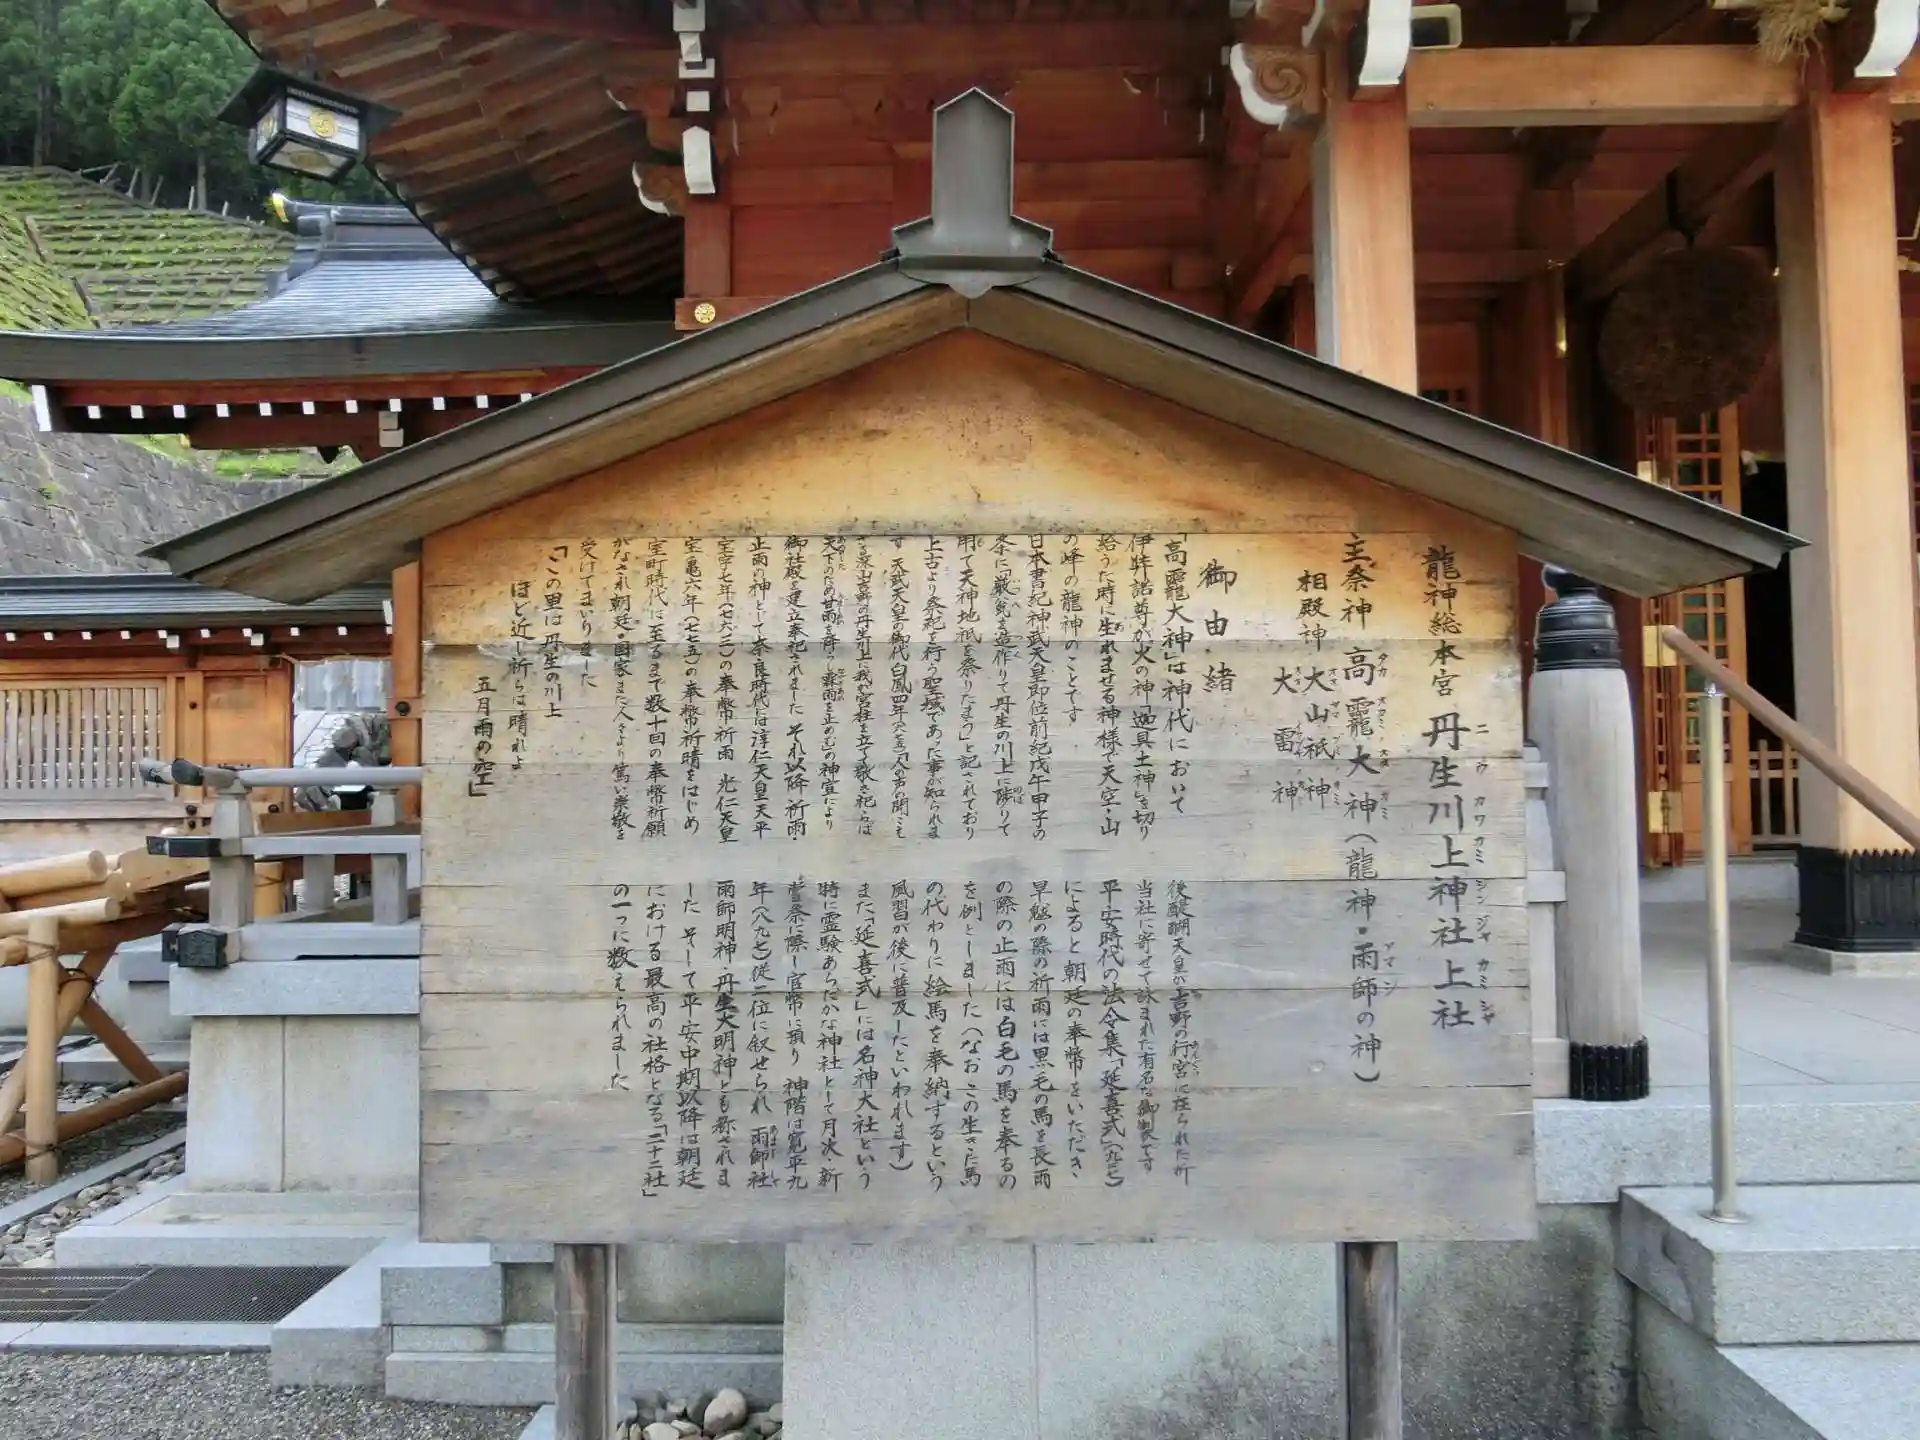 龍神総本宮 丹生川上神社上社
主祭神 高龗大神(龍神・雨師の神)
相殿神 大山祇神
大雷神
御由緒
「高龗大神」は神代において
伊弉諾尊が火の神「迦具土神」を切り
給うた時に生れませる神様で天空・山
の峰の龍神のことです
日本書紀神武天皇即位前紀戊午甲子の
条に「厳瓮を造作りて丹生の川上に陟りて
用て天神地祇を祭りたまう」と記されており
上古より祭祀を行う聖域であった事が知られま
す 天武天皇の御代白鳳四年(六七五)「人の声の聞こえ
ざる深山吉野の丹生川上に我が宮柱を立て敬き祀らば
天下のため甘雨を降らし霖雨を止めむの神宣により
御社殿を建立奉祀されました それ以降 祈雨・
止雨の神として奈良時代には淳仁天皇天平
宝字七年(七六三)の奉幣祈雨 光仁天皇
宝亀六年(七七五)の奉幣祈晴をはじめ
室町時代に至るまで数十回の奉幣祈願
がなされ朝廷・国家また人々より篤い崇敬を
受けてまいりました
「この里は丹生の川上
ほど近し祈らば晴れよ
五月雨の空」
後醍醐天皇が吉野の行宮に在られた折
当社に寄せて詠まれた有名な御製です
平安時代の法令集「延喜式」(九二七)
によると朝廷の奉幣をいただき、
旱魃の際の祈雨には黒毛の馬を長雨
の際の止雨には白毛の馬を奉るの
を例としました(なおこの生きた馬
の代わりに絵馬を奉納するという
風習が後に普及したといわれます)
また「延喜式」には名神大社という
特に霊験あらたかな神社として月次・新
嘗祭に際し官幣に預り 神階は寛平九
年(八九七)従二位に叙せられ 雨師社
雨師明神・丹生大明神とも称されま
した そして平安中期以降は朝廷
における最高の社格となる「二十二社」
の一つに数えられました